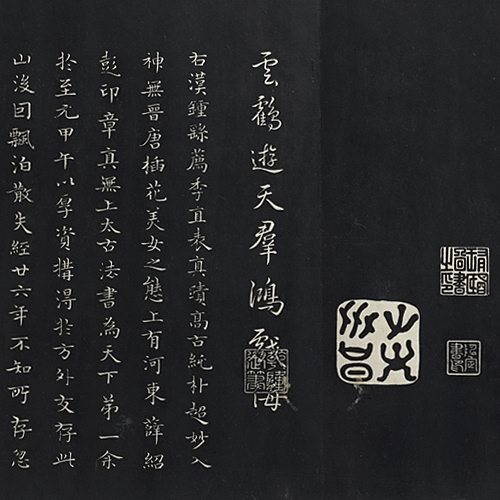 雲鶴遊天羣鴻戲海
右漢鍾繇薦季直表真蹟高古純朴超妙入
神無晉唐插花美女之態上有河東薛紹
彭印章真無上太古法書為天下第一余
於至元甲午以厚資購得於方外友存此
山後囙飄泊散失經廿六年不知所存忽